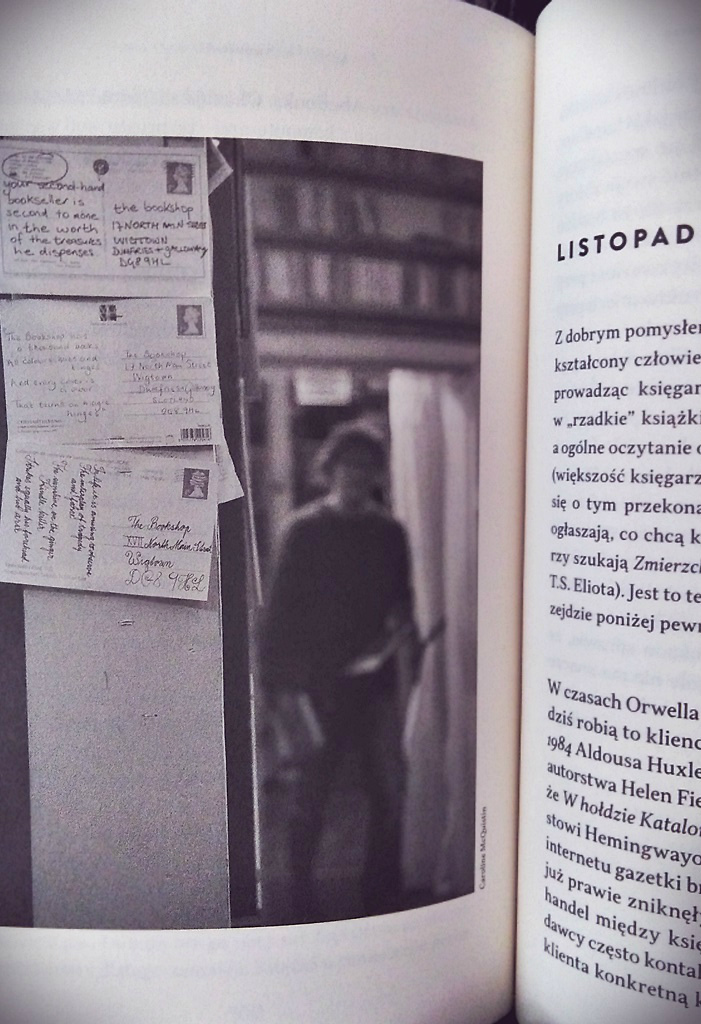 your second-hand
bookseller is
second to none
in the worth
of the treasures
he dispenses
the bookshop
17 NORTH MAIN STREET
WIGTOWN
DUMFRIES + galloway
DG8 9HL
The Bookshop has
a thousand books
All colours
And every cover is
a door
That turns on magic
hinges"
The Bookshop
17 North Main Street
Wigtown
SCOTLAND
DG8 9HL
The Bookshop
XVII North Main Street
Wigtown
DG8 9HL
Caroline McQuistin
LISTOPAD
Z dobrym pomysłe
kształcony człowie
prowadząc księgar
w „rzadkie” książki
a ogólne oczytanie
(większość księgarz
się o tym przekona
ogłaszają, co chcą k
rzy szukają Zmierzc
T.S. Eliota). Jest to te
zejdzie poniżej pew
W czasach Orwella
dziś robią to klienc
1984 Aldousa Huxle
autorstwa Helen Fie
że W hołdzie Katalo
stowi Hemingwayo
internetu gazetki br
już prawie zniknęł
handel między księ
dawcy często kontal
klienta konkretną k